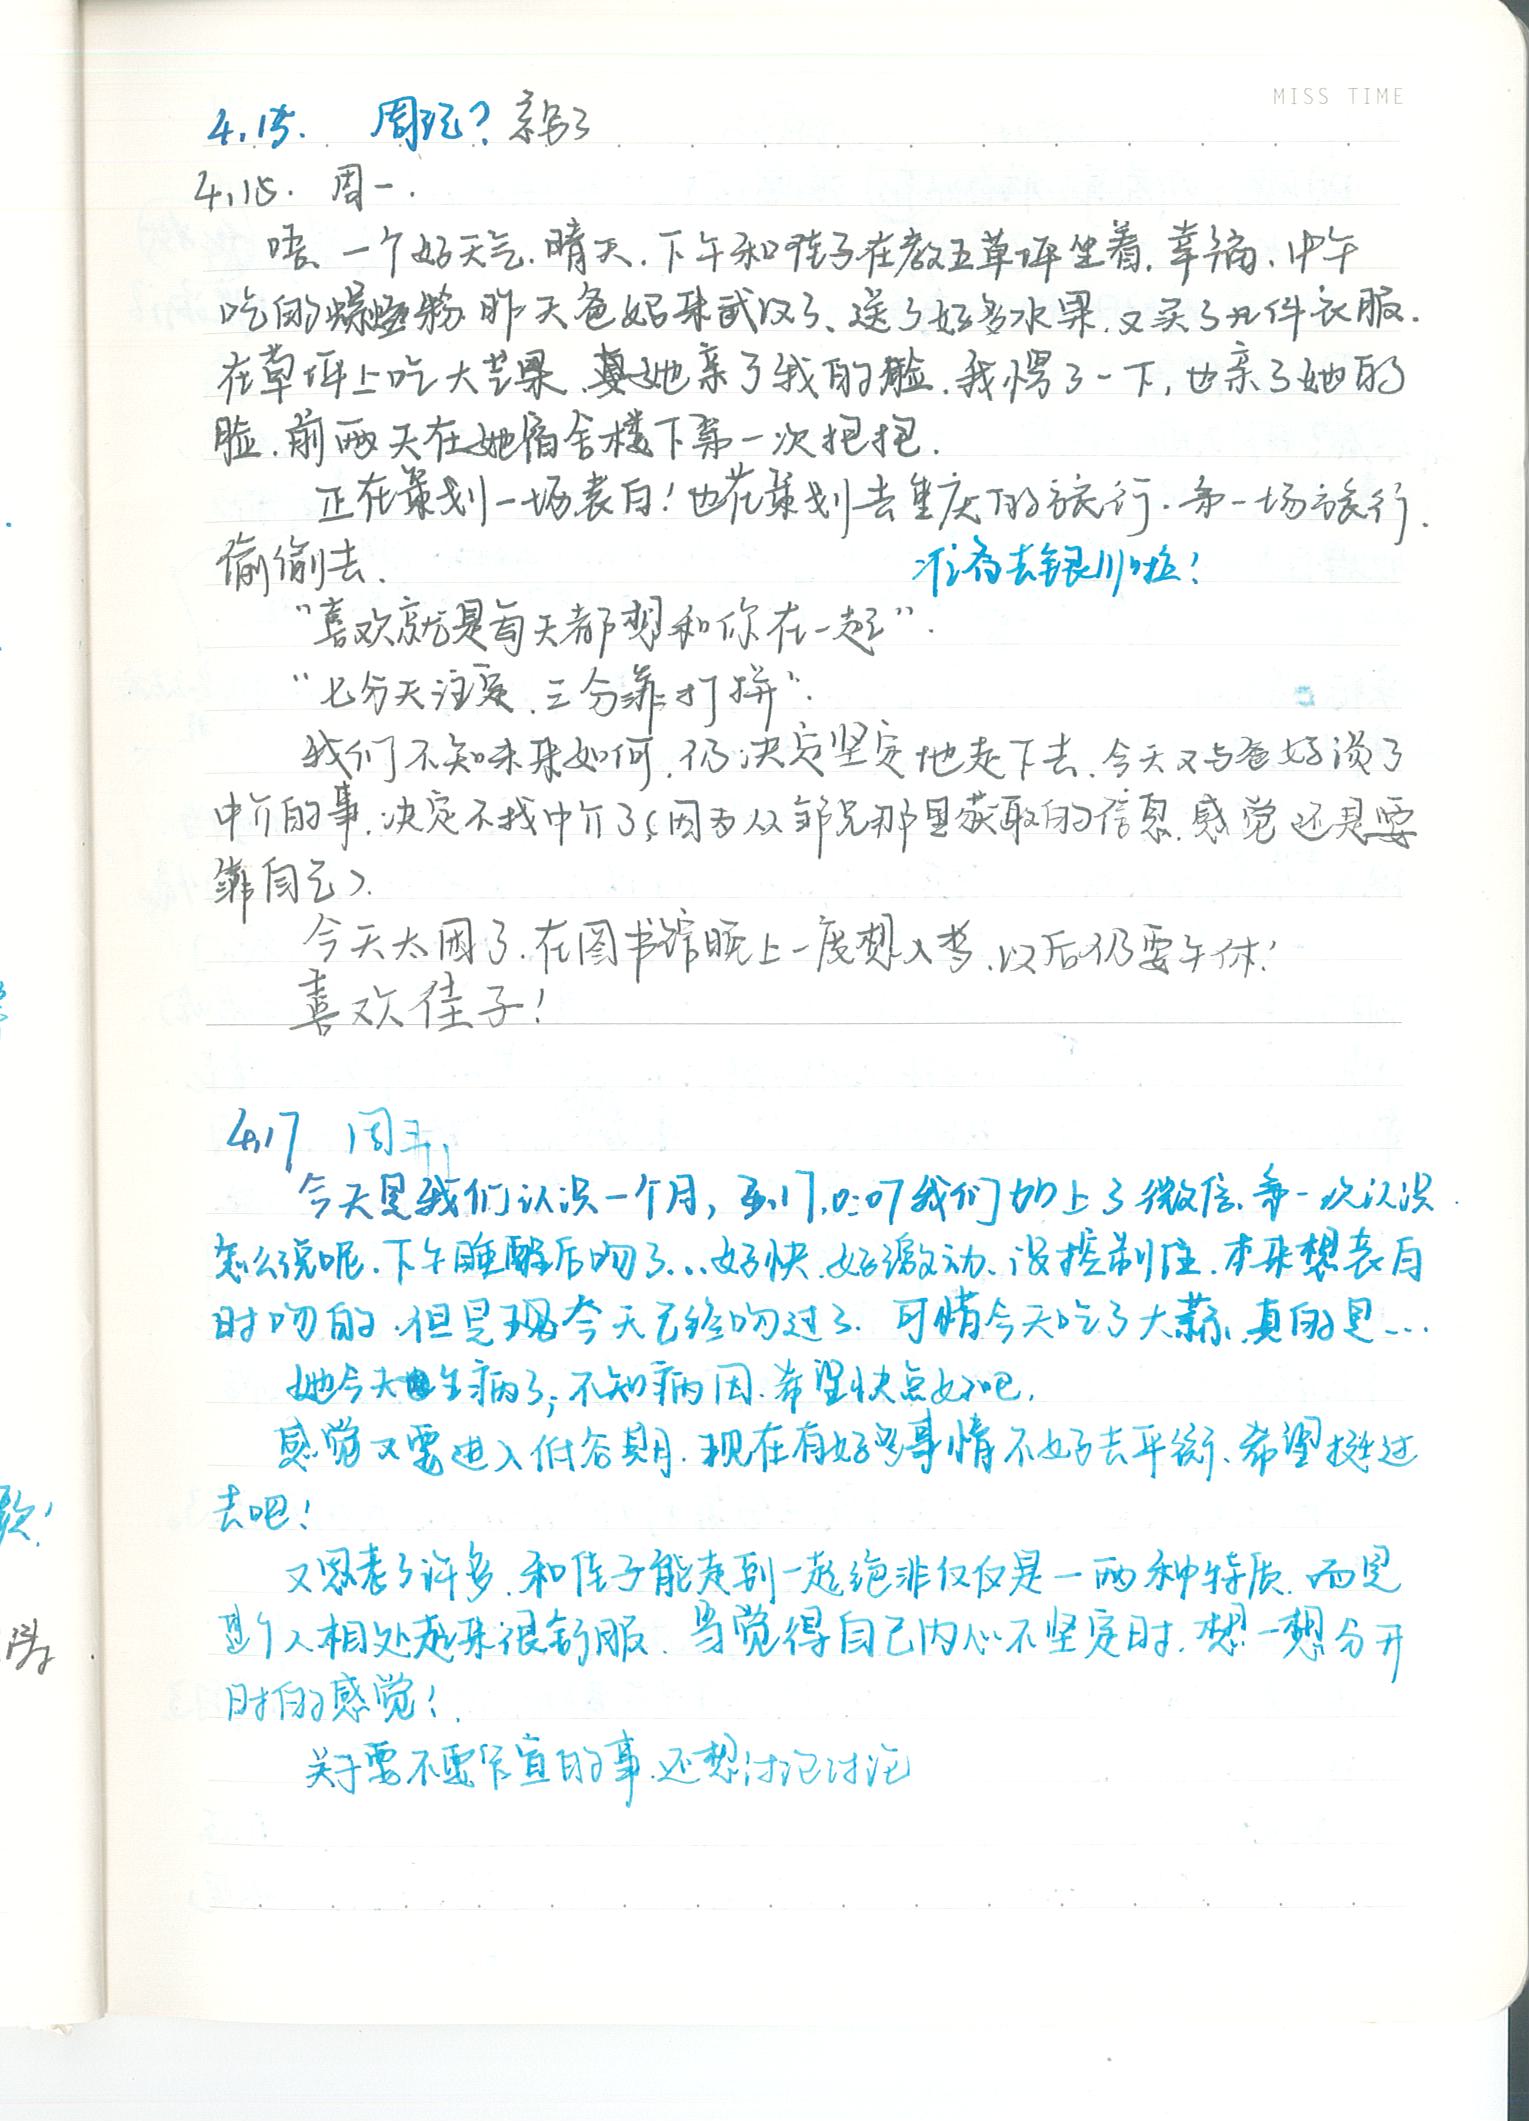 MISS TIME
4.15. 周玩？亲了
4.15. 周一.
唔、一个好天气.晴天.下午和佳子在教五草坪坐着.幸福.中午
吃的螺蛳粉.昨天爸妈来武汉了、送了好多水果.又买了几件衣服.
在草坪上吃大芒果.她亲了我的脸.我愣了一下,也亲了她的
脸.前两天在她宿舍楼下第一次抱抱.
正在策划一场表白!也在策划去重庆的旅行.第一场旅行.
偷偷去.
准备去银川啦!
"喜欢就是每天都想和你在一起".
"七分天注定.三分靠打拼".
我们不知未来如何.仍决定坚定地走下去.今天又与爸妈谈了
中介的事.决定不找中介了(因为从邹兄那里获取的信息.感觉还是要
靠自己).
今天太困了.在图书馆晚上一度想入梦.以后仍要午休!
喜欢佳子!
4.17 周三.
今天是我们认识一个月,3.17.0:07我们加上了微信.第一次认识.
怎么说呢.下午睡醒后吻了...好快.好激动、没控制住.本来想表白
时吻的.但是今天已经吻过了.可惜今天吃了大蒜、真的是...
她今天生病了;不知病因.希望快点好吧.
感觉又要进入低谷期.现在有好多事情不好去平衡、希望挺过
去吧!
又思考了许多.和佳子能走到一起绝非仅仅是一两种特质.而是
整个人相处起来很舒服.当觉得自己内心不坚定时.想一想分开
时的感觉!.
关于要不要官宣的事.还想讨论讨论